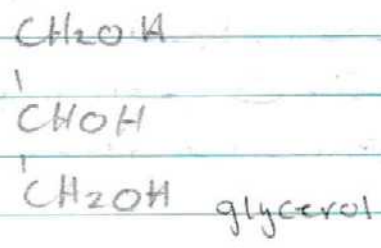 CH2OH
|
CHOH
|
CH2OH glycerol